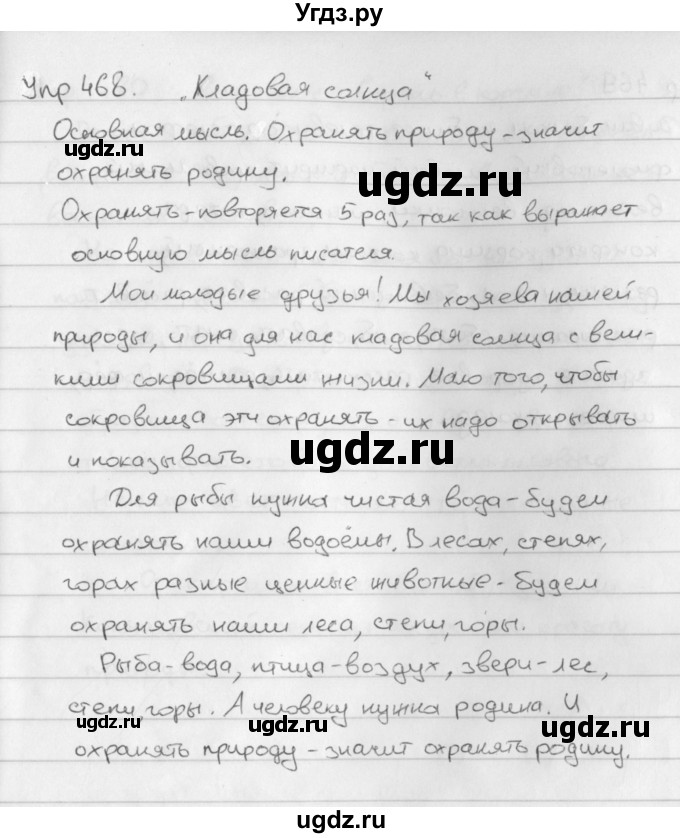 Угдз.ру
Упр 468. „Кладовая солнца"
Основная мысль. Охранять природу - значит
охранять родину.
Охранять - повторяется 5 раз, так как выражает
основную мысль писателя.
Мои молодые друзья! Мы хозяева нашей
природы, и она для нас кладовая солнца с вели-
кими сокровищами жизни. Мало того, чтобы
сокровища эти охранять - их надо открывать
и показывать.
Для рыбы нужна чистая вода - будем
охранять наши водоёмы. В лесах, степях,
горах разные ценные животные - будем
охранять наши леса, степи, горы.
Рыба - вода, птица - воздух, звери - лес,
степи, горы. А человеку нужна родина. И
охранять природу - значит охранять родину.
ugdz.ru
ugdz.ru
ugdz.ru
ugdz.ru
ugdz.ru
ugdz.ru
ugdz.ru
ugdz.ru